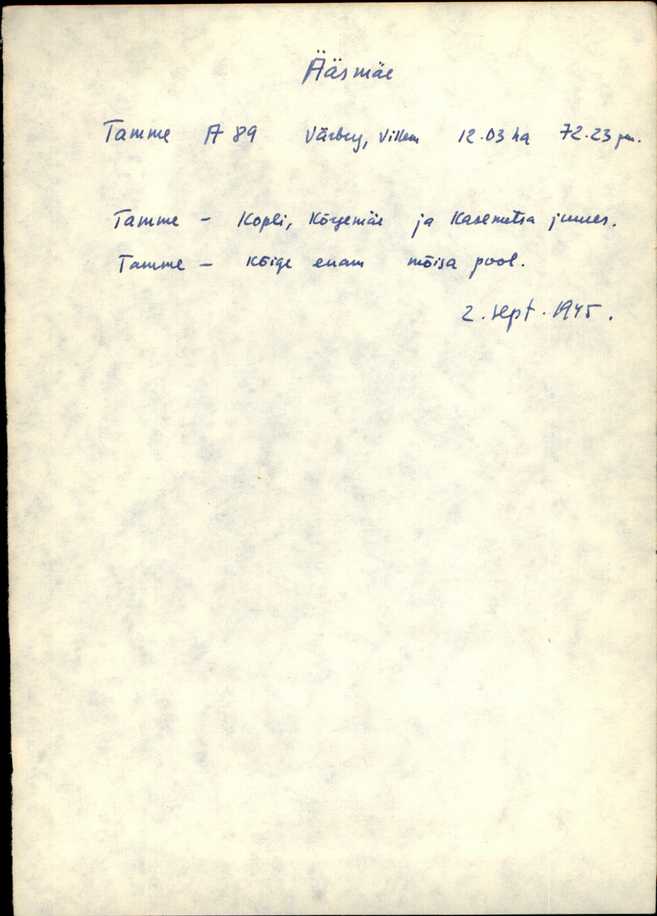 Ääsmäe
Tamme A 89 Värbey, Villem 12.03 ha 72.23 jm.
Tamme - Kopli, Kõrgemäe ja Kasemetsa juures.
Tamme - kõige enam mõisa pool.
2. sept. 1945.